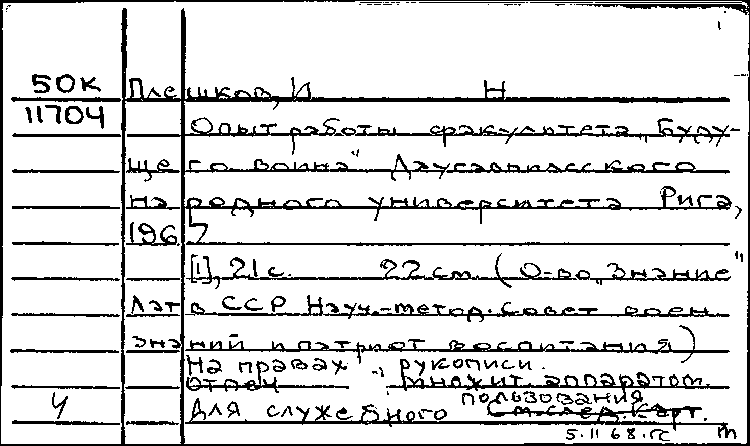 50к Плешков, И Н
11704
Опыт работы факультета „Буду-
щего воина" Даугавпилсского
народного университета Рига,
1967
[1], 21 с. 22 см. (О-во „Знание"
Латв ССР Науч.-метод. совет воен
знаний и патриот воспитания)
На правах рукописи.
Отпеч множит. аппаратом.
пользования
Для служебного См. след. карт.
5.II 68. гс